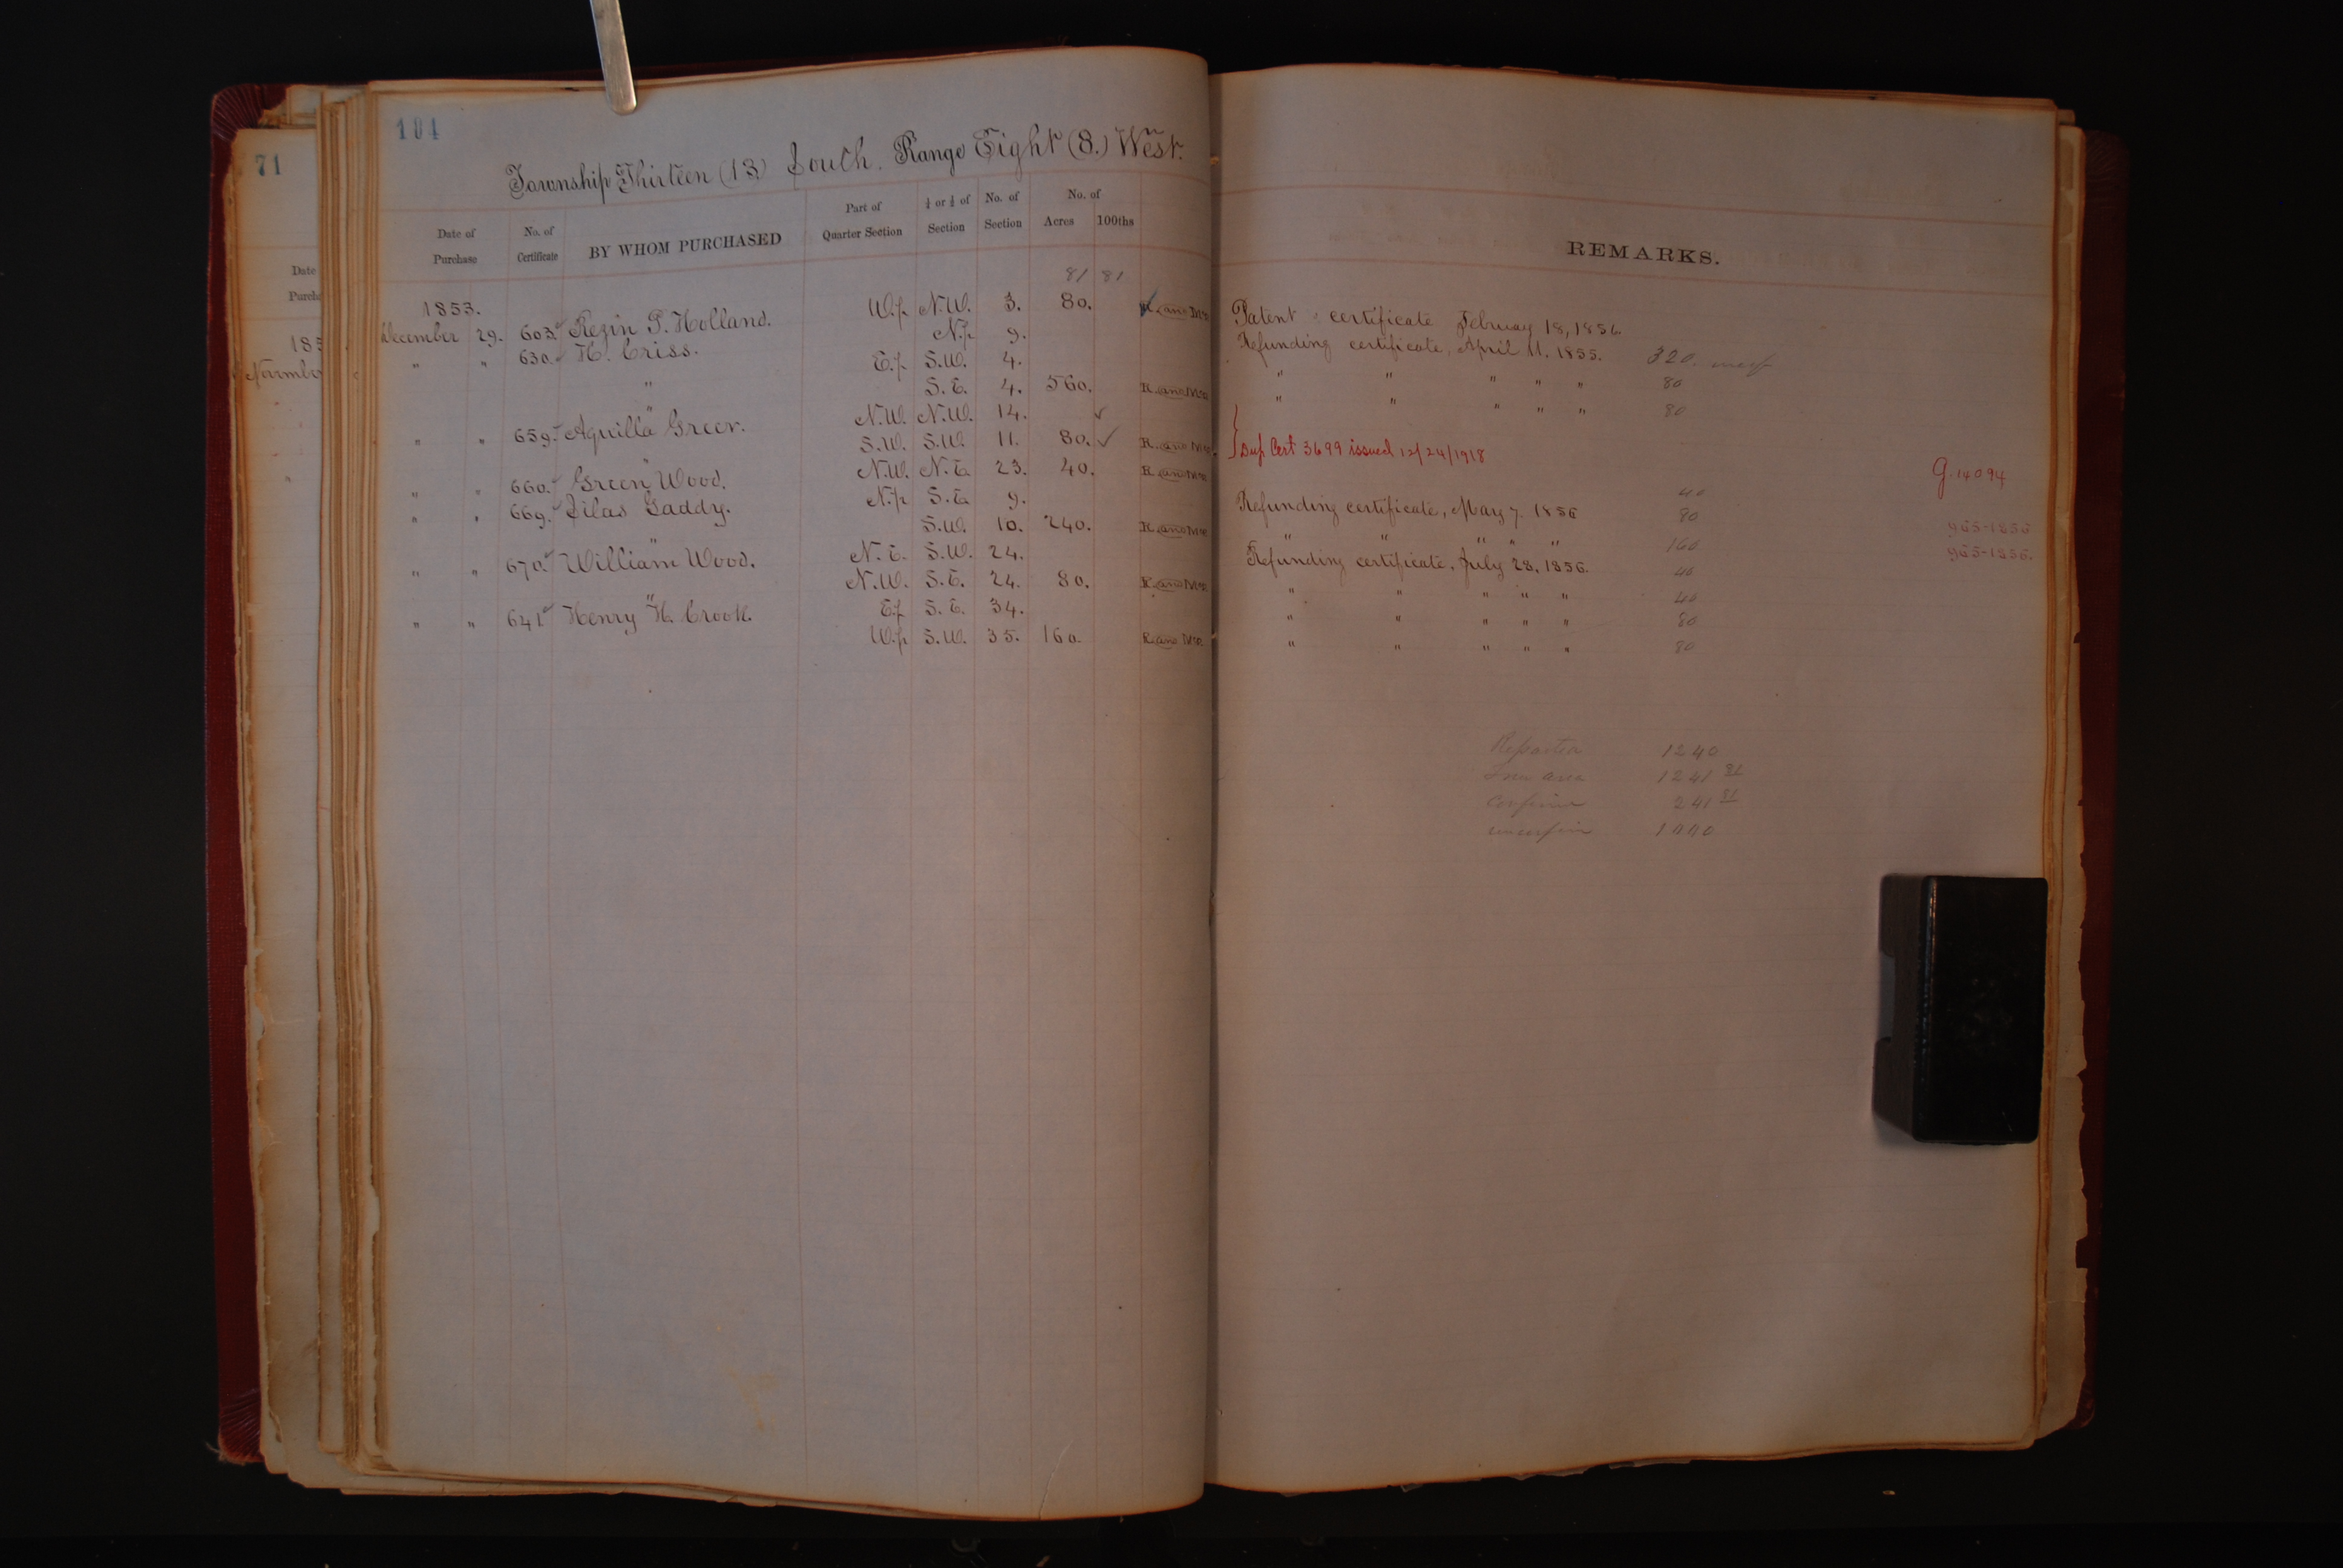 104
71
Township Thirteen (13) South. Range Eight (8.) West.
Date of Purchase
No. of Certificate
BY WHOM PURCHASED
Part of Quarter Section
½ or ¼ of Section
No. of Section
No. of
Acres 100ths
REMARKS.
Date
Purch
185
81 81
1853.
December 29. 603. Rezin P. Holland. W.p. N.W. 3. 80. Patent certificate February 18, 1856.
" " 630. H. Criss. N.p 9. Refunding certificate, April 11. 1855. 320.
E.p. S.W. 4. " " " " " 80
" S.E. 4. 560. " " " " " 80
" " 659. Aquilla Greer. N.W. N.W. 14. ✓
" S.W. S.W. 11. 80. ✓ Dup Cert 3699 issued 12/24/1918
" " 660. Green Wood. N.W. N.E. 23. 40. G. 14094
40
" " 669. Silas Gaddy. N.p. S.E. 9. Refunding certificate, May 7. 1856 80 965-1856
" S.W. 10. 240. " " " " " 160 965-1856.
" " 670. William Wood. N.E. S.W. 24. Refunding certificate, July 28, 1856. 40
" N.W. S.E. 24. 80. " " " " " 40
" " 641. Henry H. Crook. E.p. S.E. 34. " " " " " 80
W.p. S.W. 35. 160. " " " " " 80
1240
area 1241 81
241 81